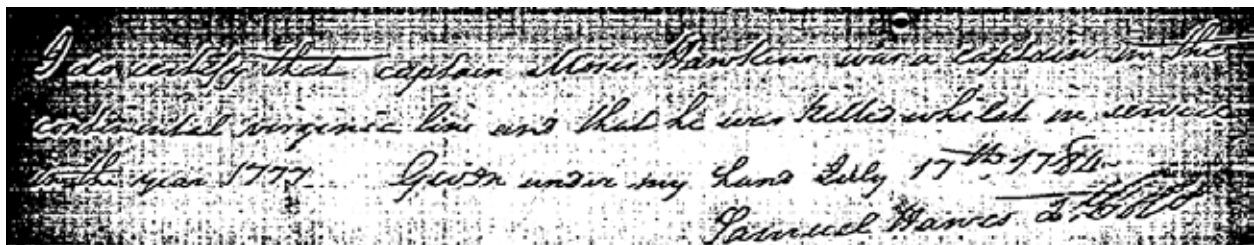 I do certify that captain Moses Hawkins was a captain in the
continental virginia line and that he was killed whilst in service
in the year 1777 Given under my hand July 17th 1784
Samuel Hawes